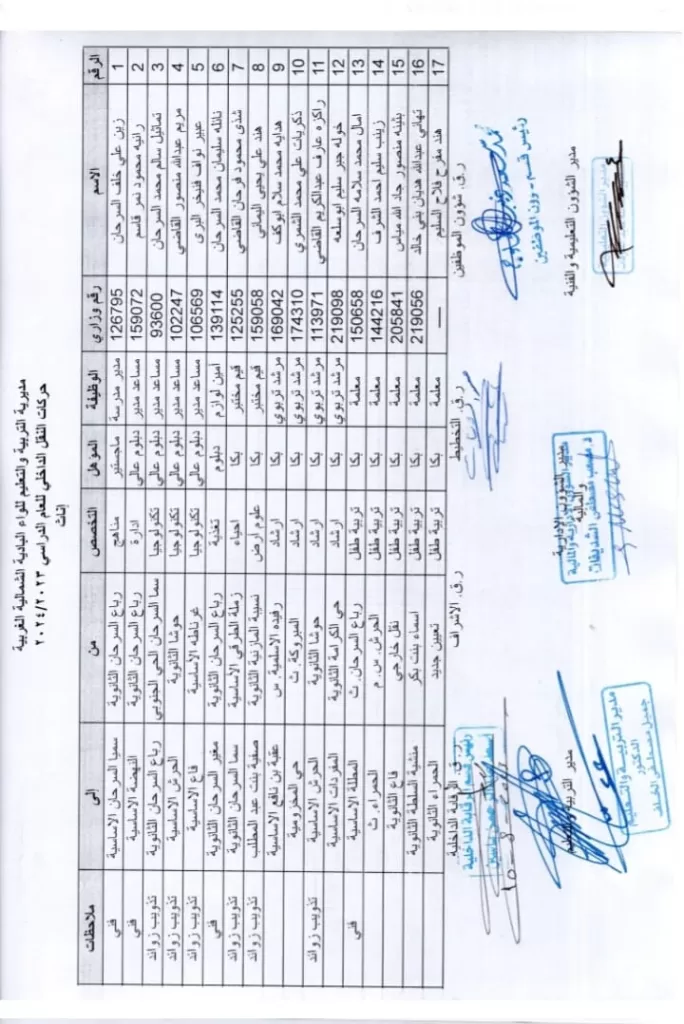 مديرية التربية والتعليم للواء البادية الشمالية الغربية
حركات النقل الداخلي للعام الدراسي ٢٠٢٤/٢٠٢٣
إناث
الرقم الاسم رقم وزاري الوظيفة المؤهل التخصص من إلى ملاحظات
1 زين علي خلف السرحان 126795 مدير مدرسة ماجستير مناهج رباع السرحان الثانوية سميا السرحان الاساسية فني
2 رانيه محمود نمر قاسم 159072 مساعد مدير دبلوم عالي ادارة رباع السرحان الثانوية النهضة الاساسية فني
3 تماثيل سالم محمد السرحان 93600 مساعد مدير دبلوم عالي تكنولوجيا سما السرحان الحي الجنوبي رباع السرحان الثانوية تذويب زوائد
4 مريم عبدالله منصور القاضي 102247 مساعد مدير دبلوم عالي تكنولوجيا حوشا الثانوية الحرش الاساسية تذويب زوائد
5 عبير نواف فنيخر البري 106569 مساعد مدير دبلوم عالي تكنولوجيا غرناطة الاساسية فاع الاساسية تذويب زوائد
6 نائله سليمان محمد السرحان 139114 أمين لوازم دبلوم تغذية رباع السرحان الثانوية مغير السرحان الثانوية فني
7 شذى محمود فرحان القاضي 125255 قيم مختبر بكا احياء زملة الطرقي الاساسية سما السرحان الثانوية تذويب زوائد
8 هند علي يحيى اليماني 159058 قيم مختبر بكا علوم ارض نسيبة المازنية الثانوية صفية بنت عبد المطلب تذويب زوائد
9 هدايه محمد سلام ابوكف 169042 مرشد تربوي بكا ارشاد رفيده الاسلمية .س عقبة بن نافع الاساسية
10 ذكريات علي محمد الشمري 174310 مرشد تربوي بكا ارشاد المبروكة .ث حي المخزومية
11 راكزه عارف عبدالكريم القاضي 113971 مرشد تربوي بكا ارشاد حوشا الثانوية الحرش الاساسية تذويب زوائد
12 خوله جبر سليم ابوسلعه 219098 مرشد تربوي بكا ارشاد حي الكرامة الثانوية المفردات الاساسية
13 امال محمد سلامه السرحان 150658 معلمة بكا تربية طفل رباع السرحان .ث المطلة الاساسية فني
14 زينب سليم احمد الشرف 144216 معلمة بكا تربية طفل الحرش .س .م الحمراء .ث
15 بثينه منصور جاد الله مياس 205841 معلمة بكا تربية طفل نقل خارجي فاع الثانوية
16 تهاني عبدالله هديان بني خالد 219056 معلمة بكا تربية طفل اسماء بنت بكر منشية السلطة الثانوية
17 هند مفرح فلاح السليم — معلمة بكا تربية طفل تعيين جديد الحمراء الثانوية
ر.ق. شؤون الموظفين ر.ق. التخطيط ر.ق. الاشراف ر.ق. الرقابة الداخلية
مدير الشؤون التعليمية والفنية
مدير الشؤون الادارية والمالية
مدير التربية والتعليم
الدكتور